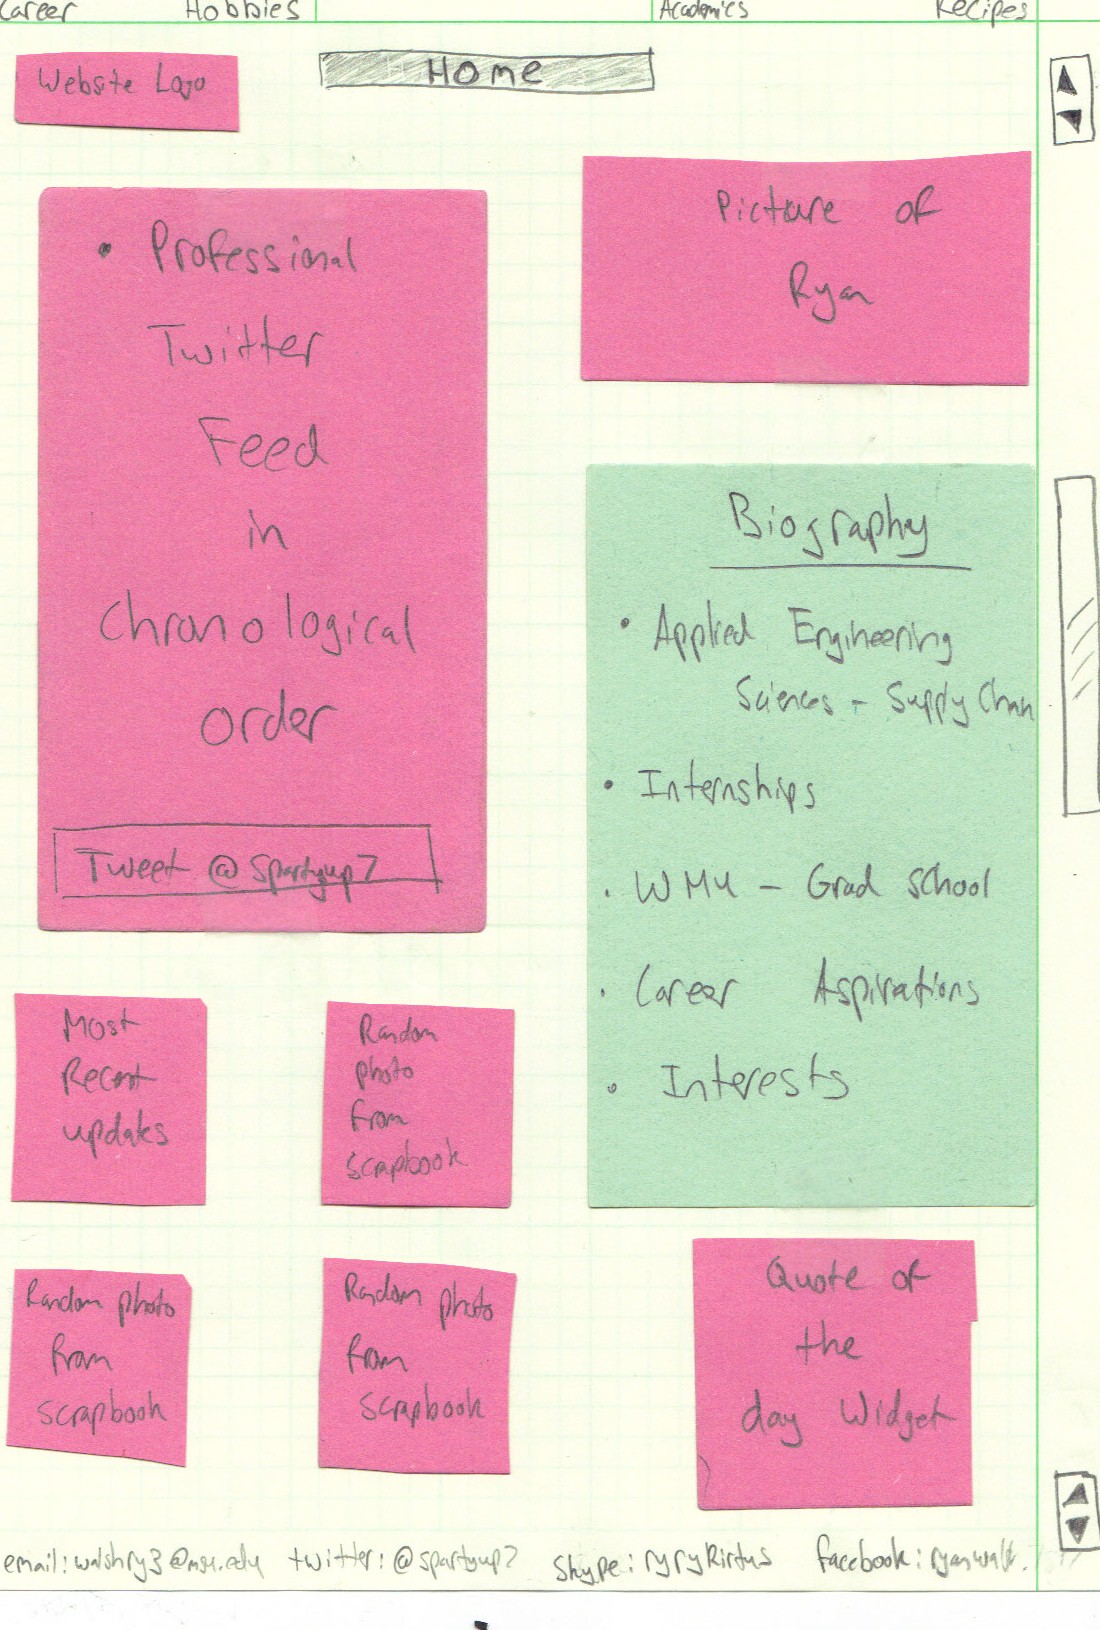 Career Hobbies Academics Recipes
Website Logo
Home
Picture of
Ryan
• Professional
Twitter
Feed
in
Chronological
order
Tweet @spartyup7
Biography
• Applied Engineering
Sciences - Supply Chain
• Internships
• WMU - Grad School
• Career Aspirations
• Interests
Most
Recent
updates
Random
photo
from
scrapbook
Random photo
from
scrapbook
Random photo
from
scrapbook
Quote of
the
day Widget
email: walshry3@msu.edu twitter: @spartyup7 Skype: ryryRirtus facebook: